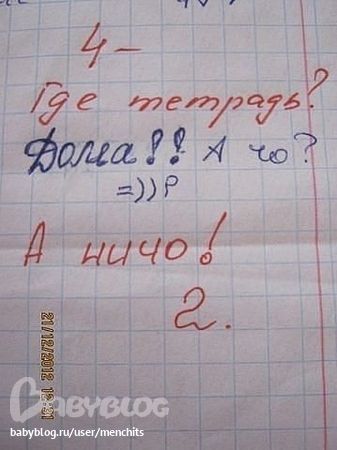 4-
Где тетрадь?
Дома!! А чо?
=))Р
А ничо!
2.
21/12/2012 12:31
BABYBLOG
babyblog.ru/user/menchits